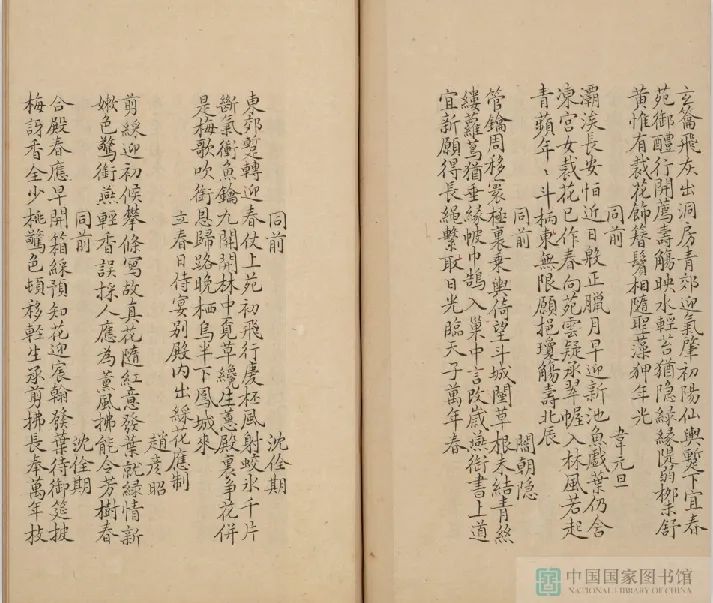 玄籥飛灰出洞房青郊迎氣肇初陽仙輿蹔下宜春
苑御醴行開薦壽觴映水輕苔猶隐緑緣隄弱栁未舒
黄惟有裁花飾簪鬢相隨聖藻狎年光
同前 韋元旦
灞涘長安怕近日殷正臘月早迎新池魚戲葉仍含
凍宫女裁花已作春向苑雲疑承翠幄入林風若起
青蘋年〻斗柄東無限願挹瓊觴壽北辰
同前 閻朝隐
管鑰周移寰極裏乘輿倚望斗城闉草根未結青絲
縷蘿蔦猶垂緑帔巾鵲入巢中言改歲燕銜書上道
宜新願得長繩繫取日光臨天子萬年春
同前 沈佺期
東郊蹔轉迎春仗上苑初飛行慶杯風射蛟氷千片
斷氣衝魚鑰九關開林中覓草纔生蕙殿裏爭花併
是梅歌吹銜恩歸路晚栖烏半下鳳城來
立春日侍宴别殿内出綵花應制
趙彦昭
剪綵迎初候攀條寫故真花隨紅意發葉就緑情新
嫩色驚銜燕輕香誤採人應為薰風拂能令芳樹春
同前 沈佺期
合殿春應早開箱綵預知花迎宸翰發葉待御筵披
梅訝香全少桃驚色頓移輕生承剪拂長奉萬年枝
中国国家图书馆
NATIONAL LIBRARY OF CHINA